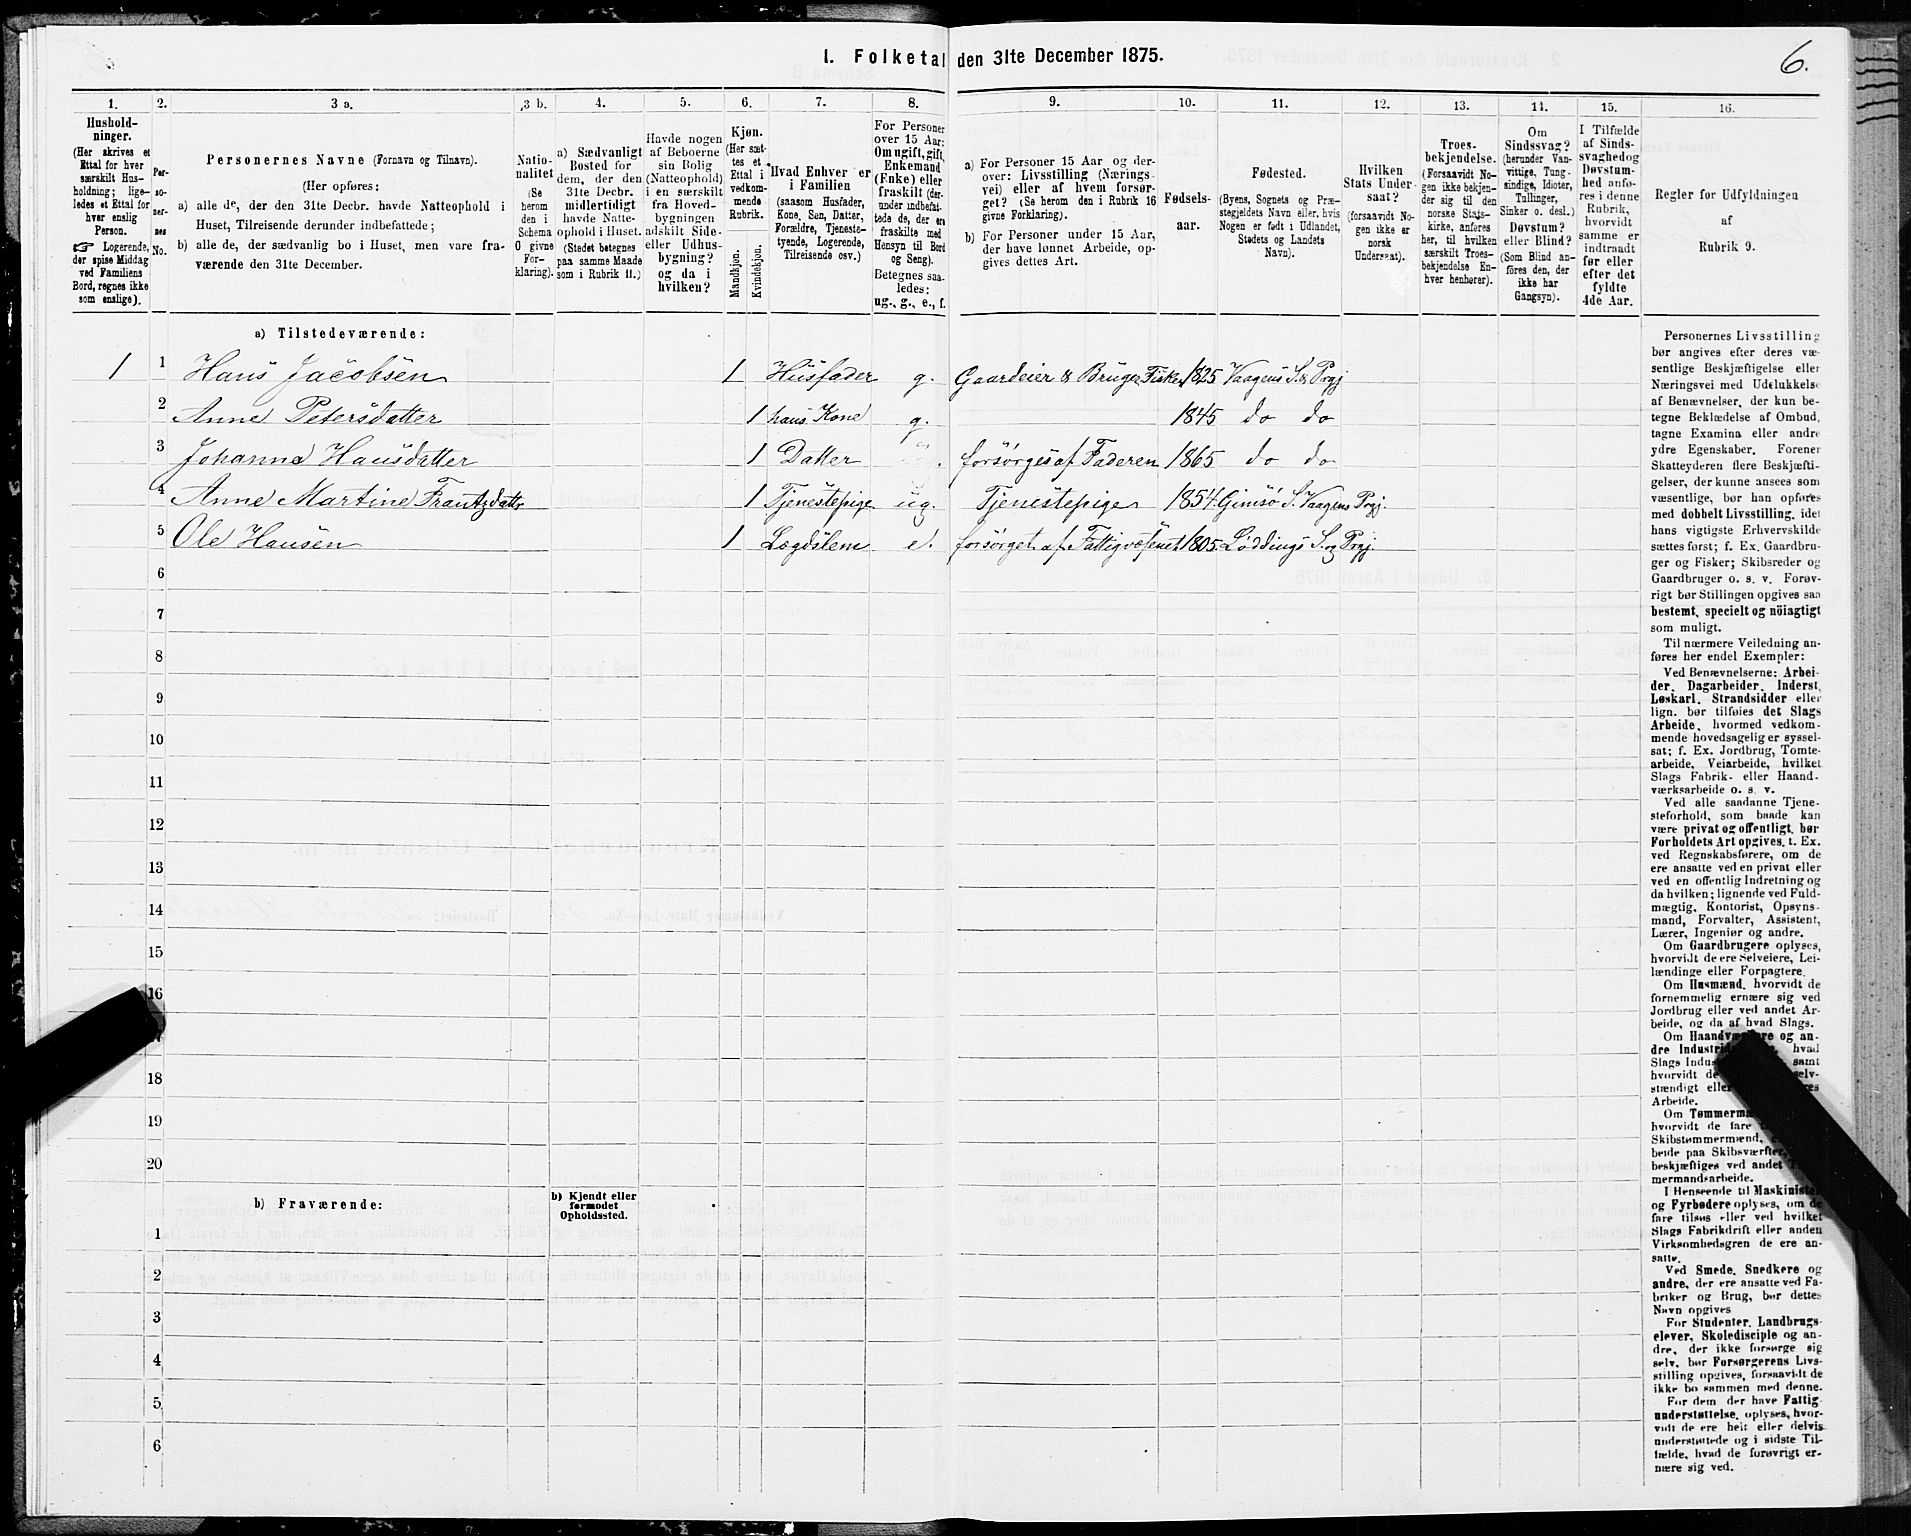 6.
I. Folketal den 31te December 1875.
1. 2. 3 a. 3 b. 4. 5. 6. 7. 8. 9. 10. 11. 12. 13. 14. 15. 16.
Hushold-
ninger.
(Her skrives et
Ettal for hver
særskilt Hus-
holdning; lige-
ledes et Ettal for
hver enslig
Person.
☞ Logerende,
der spise Middag
ved Familiens
Bord, regnes ikke
som enslige).
Per-
so-
ner-
nes
No.
Personernes Navne (Fornavn og Tilnavn).
(Her opføres:
a) alle de, der den 31te Decbr. havde Natteophold i
Huset, Tilreisende derunder indbefattede;
b) alle de, der sædvanlig bo i Huset, men vare fra-
værende den 31te December.
Natio-
nalitet
(Se
herom
den i
Schema
O givne
For-
klaring).
a) Sædvanligt
Bosted for
dem, der den
31te Decbr.
midlertidigt
havde Natte-
ophold i Huset.
(Stedet betegnes
paa samme Maade
som i Rubrik 11.)
Havde nogen
af Beboerne
sin Bolig
(Natteophold)
i en særskilt
fra Hoved-
bygningen
adskilt Side-
eller Udhus-
bygning?
og da i
hvilken?
Kjøn.
(Her sæt-
tes et
Ettal i
vedkom-
mende
Rubrik.
Mandkjøn.
Kvindekjøn.
Hvad Enhver er
i Familien
(saasom Husfader,
Kone, Søn, Datter,
Forældre, Tjeneste-
tyende, Logerende,
Tilreisende osv.)
For Personer
over 15 Aar:
Om ugift, gift,
Enkemand
(Enke) eller
fraskilt (der-
under indbefat-
tede de, der ere
fraskilte med
Hensyn til Bord
og Seng).
Betegnes saa-
ledes:
ug., g., e., f.
a) For Personer 15 Aar og der-
over: Livsstilling (Nærings-
vei) eller af hvem forsør-
get? (Se herom den i Rubrik 16
givne Forklaring).
b) For Personer under 15 Aar,
der have lønnet Arbeide, op-
gives dettes Art.
Fødsels-
aar.
Fødested.
(Byens, Sognets og Præ-
stegjeldets Navn eller, hvis
Nogen er født i Udlandet,
Stedets og Landets
Navn).
Hvilken
Stats Under-
saat?
(forsaavidt No-
gen ikke er
norsk
Undersaat).
Troes-
bekjendelse.
(Forsaavidt No-
gen ikke bekjen-
der sig til den
norske Stats-
kirke, anføres
her, til hvilken
særskilt Troes-
bekjendelse En-
hver henhører).
Om
Sindssvag?
(herunder Van-
vittige, Tung-
sindige, Idioter,
Tullinger,
Sinker o. desl.)
Døvstum?
eller Blind?
(Som Blind an-
føres den, der
ikke har
Gangsyn).
I Tilfælde
af Sinds-
svaghedog
Døvstum-
hed anfø-
res i denne
Rubrik,
hvorvidt
samme er
indtraadt
før eller
efter det
fyldte
4de Aar.
Regler for Udfyldningen
af
Rubrik 9.
a) Tilstedeværende:
1 1 Hans Jacobsen 1 Husfader g. Gaardeier & Bruger Fisker 1825 Vaagens S. & Prgj
2 Anne Petersdatter 1 hans Kone g. 1845 do do
3 Johanna Hansdatter 1 Datter forsørges af Faderen 1865 do do
4 Anne Martine Frantzdatter 1 Tjenestepige ug. Tjenestepige 1854 Gimsø S. Vaagens Prgj.
5 Ole Hansen 1 Lægdslem e. forsørget af Fattigvæsenet 1805. Løddings S. og Prgj.
6
7
8
9
10
11
12
13
14
15
16
18
19
20
b) Fraværende:
b) Kjendt eller
formodet
Opholdssted.
1
2
3
4
5
6
Personernes Livsstilling
bør angives efter deres væ-
sentlige Beskjæftigelse eller
Næringsvei med Udelukkelse
af Benævnelser, der kun be-
tegne Beklædelse af Ombud,
tagne Examina eller andre
ydre Egenskaber. Forener
Skatteyderen flere Beskjæfti-
gelser, der kunne ansees som
væsentlige, bør han opføres
med dobbelt Livsstilling, idet
hans vigtigste Erhvervskilde
sættes først; f. Ex. Gaardbru-
ger og Fisker; Skibsreder og
Gaardbruger o. s. v. Forøv-
rigt bør Stillingen opgives saa
bestemt, specielt og nöiagtigt
som muligt.
Til nærmere Veiledning an-
føres her endel Exempler:
Ved Benævnelserne: Arbei-
der, Dagarbeider, Inderst,
Løskarl, Strandsidder eller
lign. bør tilføies det Slags
Arbeide, hvormed vedkom-
mende hovedsagelig er syssel-
sat; f. Ex. Jordbrug, Tomte-
arbeide, Veiarbeide, hvilket
Slags Fabrik- eller Haand-
værksarbeide o. s. v.
Ved alle saadanne Tjene-
steforhold, som baade kan
være privat og offentligt, bør
Forholdets Art opgives, t. Ex.
ved Regnskabsførere, om de
ere ansatte ved en privat eller
ved en offentlig Indretning og
da hvilken; lignende ved Fuld-
mægtig, Kontorist, Opsyns-
mand, Forvalter, Assistent,
Lærer, Ingeniør og andre.
Om Gaardbrugere oplyses,
hvorvidt de ere Selveiere, Lei-
lændinge eller Forpagtere.
Om Husmænd, hvorvidt de
fornemmelig ernære sig ved
Jordbrug eller ved andet Ar-
beide, og da af hvad Slags.
Om Haandværkere og an-
dre hvad
Slags samt
hvorvidt de
stændigt eller
Arbeide.
Om
hvorvidt de fare
Skibstømmermænd,
beide paa Skibsværfter,
beskjæftiges ved andet
mermandsarbeide.
I Henseende til Maskinister
og Fyrbødere oplyses, om de
fare tilsøs eller ved hvilket
Slags Fabrikdrift eller anden
Virksomhedsgren de ere an-
satte.
Ved Smede, Snedkere og
andre, der ere ansatte ved Fa-
briker og Brug, bør dettes
Navn opgives
For Studenter, Landbrugs-
elever, Skoledisciple og an-
dre, der ikke forsørge sig
selv, bør Forsørgerens Livs-
stilling opgives, forsaavidt de
ikke bo sammen med denne.
For dem, der have Fattig-
understøttelse, oplyses, hvor-
vidt de ere helt eller delvis
understøttede og i sidste Til-
fælde, hvad de forøvrigt er-
nære sig ved.